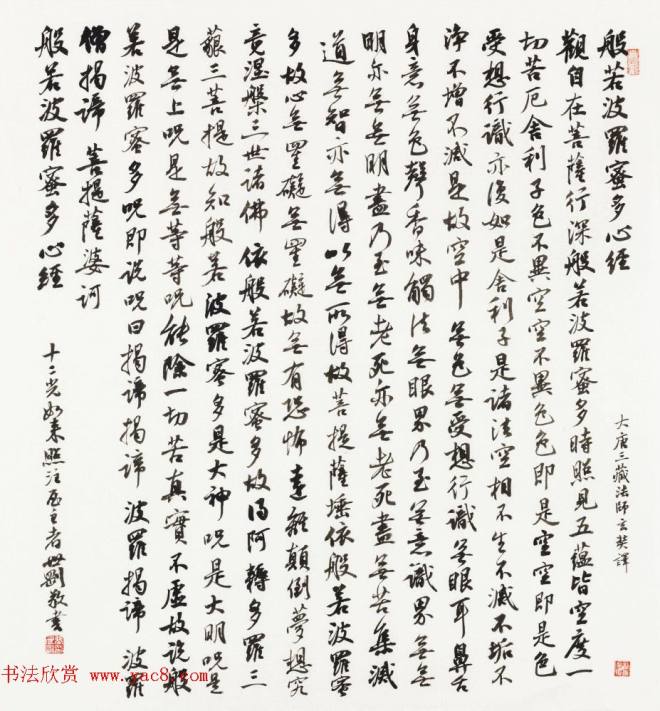 般若波羅蜜多心經
大唐三藏法師玄奘譯
觀自在菩薩行深般若波羅蜜多時照見五蘊皆空度一
切苦厄舍利子色不異空空不異色色即是空空即是色
受想行識亦復如是舍利子是諸法空相不生不滅不垢不
淨不增不減是故空中無色無受想行識無眼耳鼻舌
身意無色聲香味觸法無眼界乃至無意識界無無
明亦無無明盡乃至無老死亦無老死盡無苦集滅
道無智亦無得以無所得故菩提薩埵依般若波羅蜜
多故心無罣礙無罣礙故無有恐怖遠離顛倒夢想究
竟涅槃三世諸佛依般若波羅蜜多故得阿耨多羅三
藐三菩提故知般若波羅蜜多是大神咒是大明咒是
是無上咒是無等等咒能除一切苦真實不虛故說般
若波羅蜜多咒即說咒曰揭諦揭諦波羅揭諦波羅
僧揭諦 菩提薩婆訶
般若波羅蜜多心經
十二光如來照住 書
书法欣赏 www.yac8.com